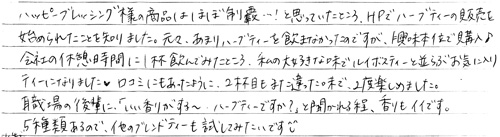 ハッピーブレッシング様の商品はほぼ制覇…！と思っていたところ、HPでハーブティーの販売も
始められたことを知りました。元々、あまりハーブティーを飲まなかったのですが、興味本位で購入♪
会社の休憩時間に1杯飲んでみたところ、私の大好きな口味でルイボスティーと並らぶお気に入り
ティーになりました♥ 口コミにもあったように、2杯目もまた違った口味で、2度楽しめました。
職場の後輩に、「いい香りがする〜 ハーブティーですか?」と聞かれる程、香りもイイです。
5種類あるので、他のブレンドティーも試してみたいです☺